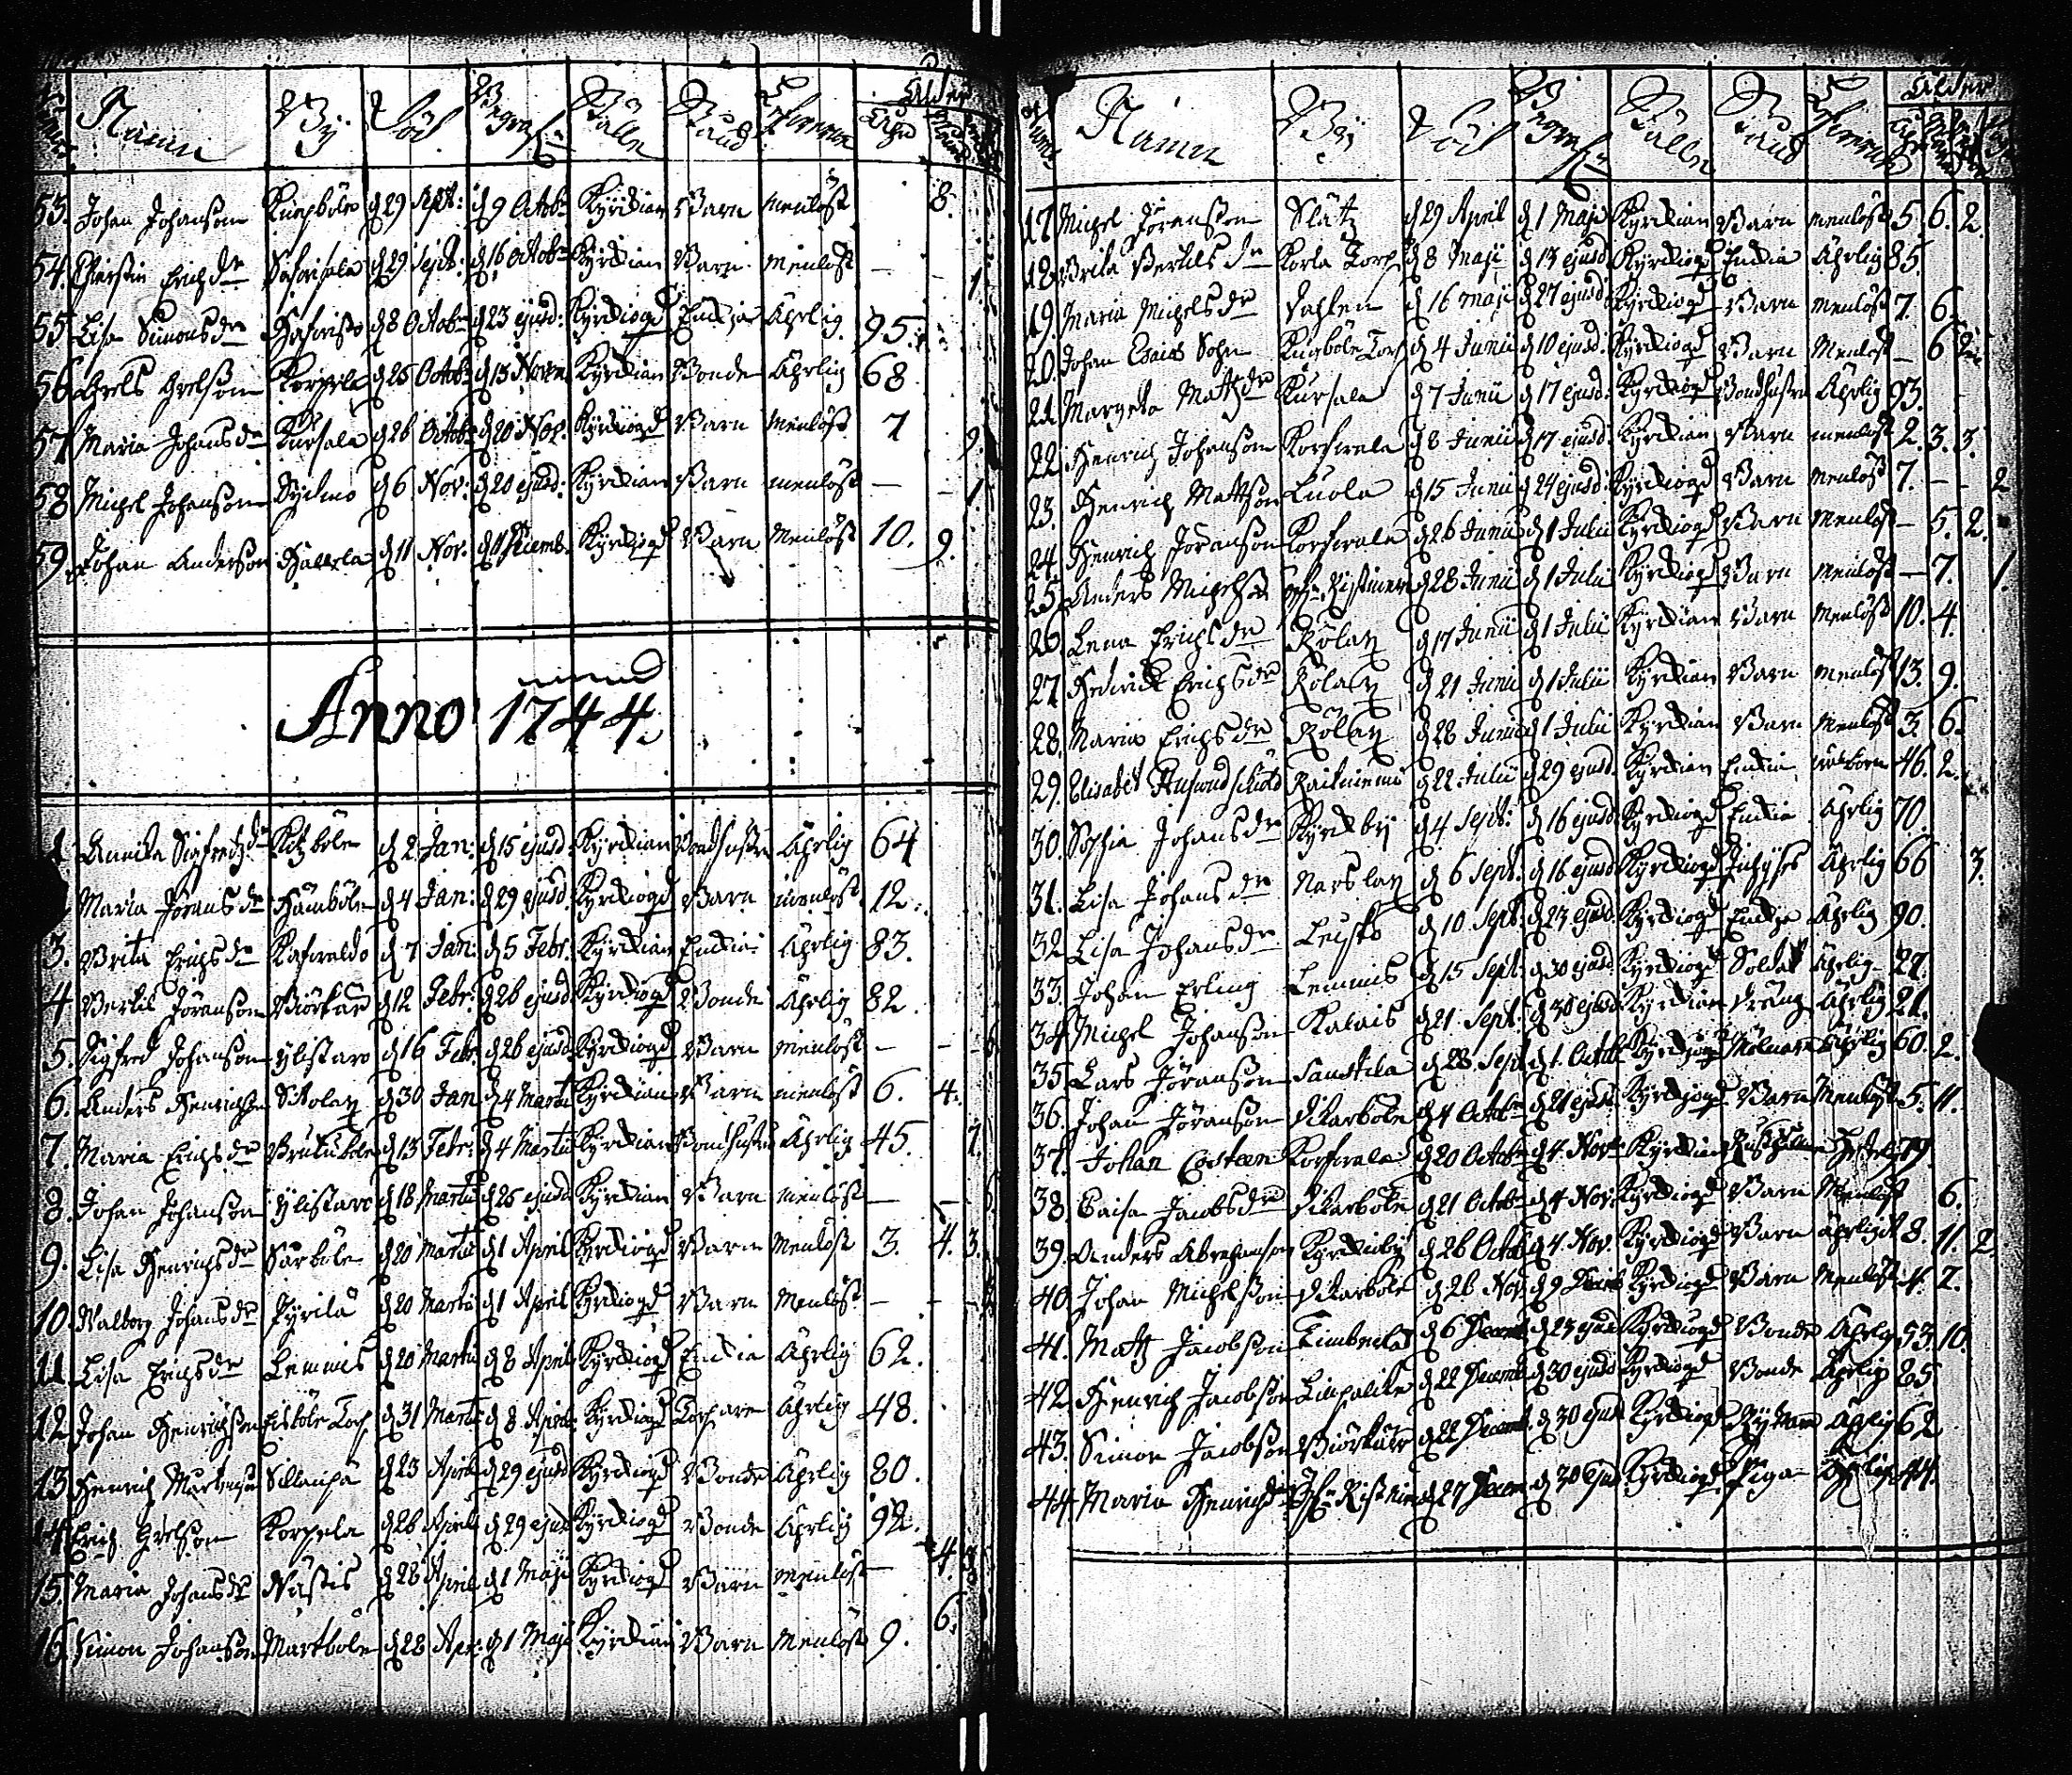 Namn By Död Begrafn. Ställe Stånd Lefverne Ålder
53. Johan Johanson Kuepböle d 29 Sept: d 9 Octobr Kyrckian Barn menlöst 8.
54. Christin Erichsdr d 29 Sept: d 16 Octobr Kyrckian Barn Menlöst — 1
55 Lisa Simonsdr d 8 Octobr d 23 ejusd: Kyrckiogd Enckia Ährlig 95.
56 Korpela d 26 Octobr d 13 Novem Kyrckian Bonde Ährlig 68
57 Maria Johansdr Kursala d 26 Octobr d 20 Nov. Kyrckiogd Barn Menlöst 7 9.
58 Michel Johanson d 6 Nov: d 20 ejusd: Kyrckian Barn menlöst — — 1.
59. Johan Anderson d 11 Nov. d 11 Decemb. Kyrckiogd Barn Menlöst 10. 9.
Anno 1744.
1 Annika Sigfredzdr Kitzböle d 2 Jan: d 15 ejusd: Kyrckian Bondhustru Ährlig 64
Maria Jöransdr Hämböle d 4 Jan: d 29 ejusd: Kyrckiogd Barn menlöst 12.
3. Brita Erichsdr d 7 Jan: d 5 Febr. Kyrckian Enckia Ährlig 83.
4 Bertil Jöranson Biörkas d 12 Febr: d 26 ejusd Kyrckiogd Bonde Ährlig 82
5. Sigfred Johanson Ylistaro d 16 Febr. d 26 ejusd Kyrckiogd Barn Menlöst — — 6
6. Anders Henrichson d 30 Jan d 4 Martii Kyrckian Barn menlöst 6. 4.
7. Maria Erichsdr d 13 Febr: d 4 Martii Kyrckian Bondhustru Ährlig 45. 7.
8. Johan Johanson Ylistaro d 18 Martii d 25 ejusd Kyrckian Barn menlöst —
9. Lisa Henrichsdr Särböle d 20 Martii d 1 April Kyrckiogd Barn Menlöst 3. 4. 3.
10. Walborg Johansdr Pyrilä d 20 Martii d 1 April Kyrckiogd Barn Menlöst — —
11 Lisa Erichsdr Lemmis d 20 Martii d 8 April Kyrckiogd Enckia Ährlig 62.
12 Johan Henrichson Torp d 31 Martii d 8 April Kyrckiogd Torpare Ährlig 48.
13 Henrich Sillanpä d 23 April d 29 ejusd Kyrckiogd Bonde Ährlig 80.
14 Erich Korpela d 26 April d 29 ejusd Kyrckiogd Bonde Ährlig 92.
15. Maria Johansdr Nästis d 28 April d 1 Maji Kyrckiogd Barn menlöst — 4 3.
16. Simon Johanson Markböle d 28 Apr: d 1 Maji Kyrckian Barn Menlöst 9. 6.
Namn By Död Begrafn. Ställe Stånd Lefverne Ålder
17 Michel Jöranson Slätz d 29 April d 1 Maji Kyrckian Barn menlöst 5. 6. 2.
18. Brita Bertilsdr Korla Torp d 8 Maji d 13 ejusd Kyrckiogd Enckia Ährlig 85.
19. Maria Michelsdr Dahlen d 16 maji d 27 ejusd Kyrckiogd Barn Menlöst 7. 6.
20. Johan Esaias Sohn Torp d 4 Junii d 10 ejusd: Kyrckiogd Barn Menlöst — 6
21. Margeta Matzdr Kursala d 7 Junii d 17 ejusd: Kyrckiogd Bondhustru Ährlig 93.
22. Henrich Johanson Korfwala d 8 Junii d 17 ejusd: Kyrckian Barn menlöst 2. 3. 3.
23. Henrich Mattson Luola d 15 Junii d 24 ejusd: Kyrckiogd Barn Menlöst 7. — — 2
24 Henrich Jöranson Korfwala d 26 Junii d 1 Julii Kyrckiogd Barn Menlöst — 5. 2.
25. Anders Michelson d 28 Junii d 1 Julii Kyrckiogd Barn Menlöst — 7. 1.
26 Lena Erichsdr Rölax d 17 Junii d 1 Julii Kyrckian Barn Menlöst 10. 4.
27. Hedwick Erichsdr Rölax d 21 Junii d 1 Julii Kyrckian Barn menlöst 13. 9.
28. Maria Erichsdr Rölax d 28 Junii d 1 Julii Kyrckian Barn Menlöst 3. 6.
29. Elisabet Raitniemi d 22 Julii d 29 ejusd. Kyrckian Enckia 46. 2.
30. Sophia Johansdr Kyrckby d 4 Sept: d 16 ejusd Kyrckiogd Enckia Ährlig 70.
31. Lisa Johansdr Narslax d 6 Sept: d 16 ejusd Kyrckiogd Inhyses Ährlig 66 3.
32 Lisa Johansdr Leisto d 10 Sept: d 23 ejusd: Kyrckiogd Enckia Ährlig 90.
33. Johan Erling Lemmis d 15 Sept: d 30 ejusd Kyrckiogd Soldat Ährlig 27.
34 Michel Johanson Kalais d 21 Sept: d 30 ejusd Kyrckian Dräng Ährlig 21.
35. Lars Jöranson d 28 Sept d 1 Octob: Kyrckiogd Ährlig 60. 2.
36. Johan Jöranson Wikarböle d 4 Octobr d 21 ejusd: Kyrckiogd Barn Menlöst 5. 11.
37. Johan Costeen Korfwala d 20 Octobr d 4 Novr Kyrckian 79.
38. Caisa Jacobsdr Wikarböle d 21 Octobr d 4 Nov. Kyrckiogd Barn Menlöst 6.
39. Anders Abrahamson Kyrckieby d 26 Octob d 4 Nov. Kyrckiogd Barn ährligt 8. 11. 2.
40. Johan Michelson Wikarböle d 26 Nov. d 9 Decemb Kyrckiogd Barn Menlöst 4. 2.
41. Matz Jacobson d 6 Decemb d 23 ejusd Kyrckiogd Bonde Ährlig 53. 10.
42. Henrich Jacobson Linpaltke d 22 Decemb d 30 ejusd Kyrckiogd Bonde Ährlig 85
43. Simon Jacobson Biörkäls d 22 Decemb. d 30 ejusd Kyrckiogd Ährlig 62
44. Maria Henrichsdr d 27 Decem d 30 ejusd Kyrckiogd Piga Ährlig 44.